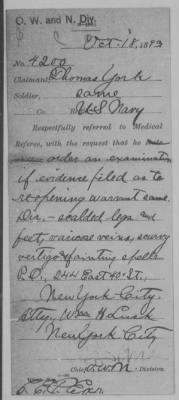 O. W. and N. Div.
Oct. 18, 1892
No. 4200
Claimant, Thomas York
Soldier, same
Co. U.S. Navy
Respectfully referred to Medical
Referee, with the request that he
order an examination
if evidence filed as to
reopening warrant same.
Dis. - scalded legs and
feet, varicose veins, scurvy
vertigo & fainting spells
P.O., 244 East 40. St.,
New York City.
Atty,
New York City
Chief O.W.N. Division.
Exr.